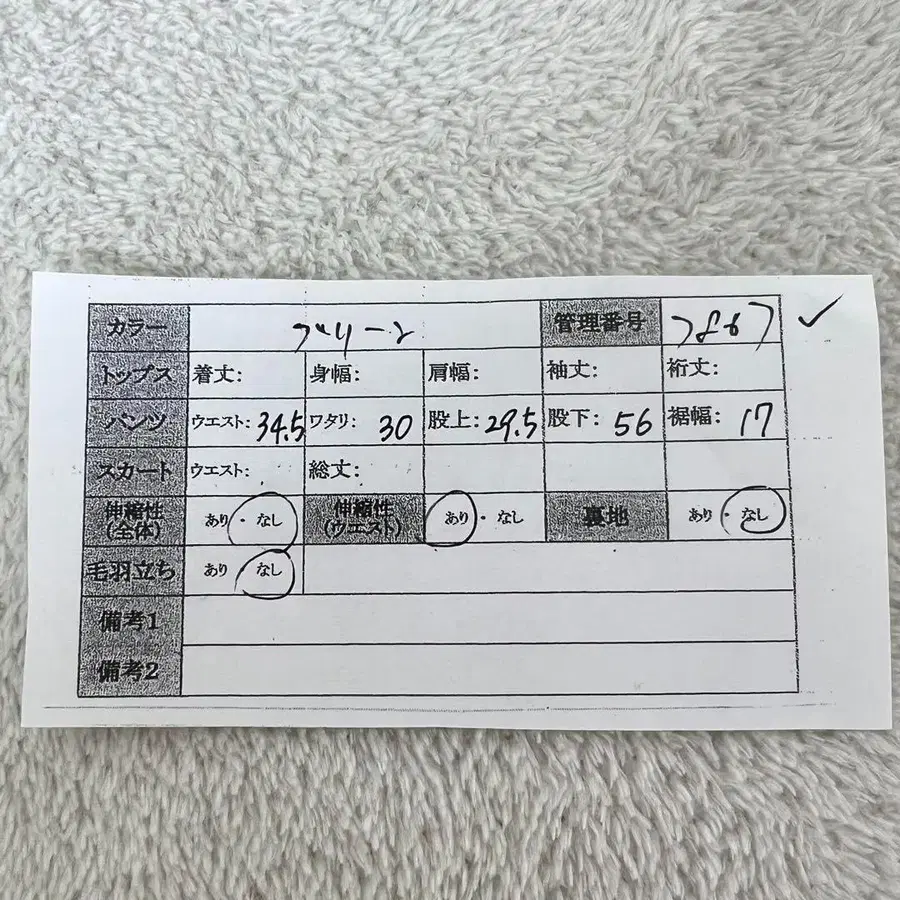 カラー グリーン 管理番号
トップス 着丈: 身幅: 肩幅: 袖丈: 裄丈:
パンツ ウエスト: 34.5 ワタリ: 30 股上: 29.5 股下: 56 裾幅: 17
スカート ウエスト: 総丈:
伸縮性(全体) あり・なし 伸縮性(ウエスト) あり・なし 裏地 あり・なし
毛羽立ち あり・なし
備考1
備考2